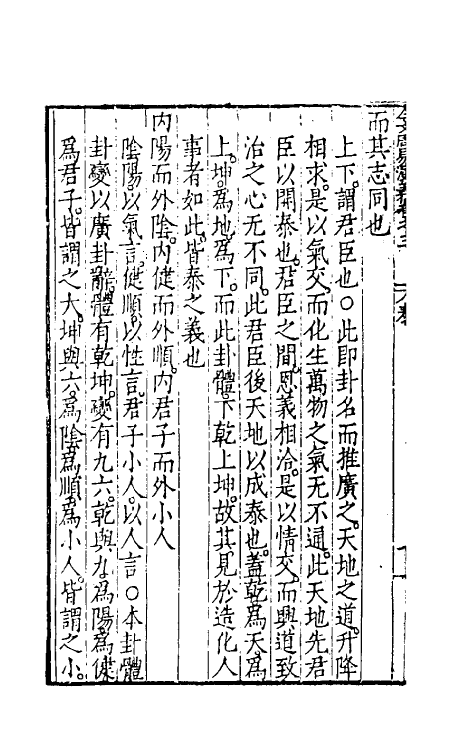 而其志同也
上下。謂君臣也〇此即卦名而推廣之。天地之道。升降
相求。是以氣交。而化生萬物之氣无不通。此天地先君
臣以開泰也。君臣之間。恩義相洽。是以情交。而興道致
治之心无不同。此君臣後天地以成泰也。蓋乾爲天。爲
上。坤。爲地。爲下。而此卦體。下乾上坤。故其見於造化人
事者如此。皆泰之義也
内陽而外陰。内健而外順。内君子而外小人
陰陽。以氣言。健順。以性言。君子小人。以人言〇本卦體
卦變以廣卦辭。體有乾坤。變有九六。乾與九。爲陽。爲健
爲君子。皆謂之大。坤與六。爲陰。爲順。爲小人。皆謂之小。